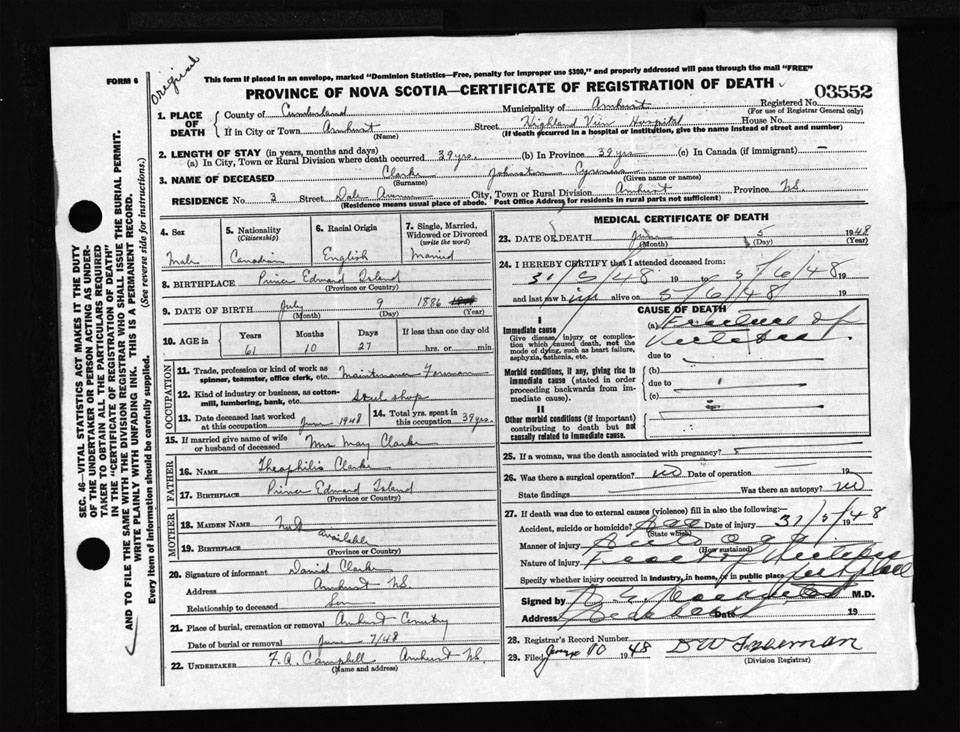 Original
FORM 6
This form if placed in an envelope, marked "Dominion Statistics—Free, penalty for improper use $300," and properly addressed will pass through the mail "FREE"
PROVINCE OF NOVA SCOTIA—CERTIFICATE OF REGISTRATION OF DEATH
03552
1. PLACE OF DEATH
County of Cumberland Municipality of Amherst Registered No.
(For use of Registrar General only)
If in City or Town Amherst Street Highland View Hospital House No.
(Name) (If death occurred in a hospital or institution, give the name instead of street and number)
2. LENGTH OF STAY (in years, months and days)
(a) In City, Town or Rural Division where death occurred 39 yrs. (b) In Province 39 yrs (c) In Canada (if immigrant) —
3. NAME OF DECEASED Clarke Johnston
(Surname) (Given name or names)
RESIDENCE No. 3 Street Dale Avenue City, Town or Rural Division Amherst Province N.S.
(Residence means usual place of abode. Post Office Address for residents in rural parts not sufficient)
4. Sex
Male
5. Nationality
(Citizenship)
Canadian
6. Racial Origin
English
7. Single, Married, Widowed or Divorced
(write the word)
Married
8. BIRTHPLACE Prince Edward Island
(Province or Country)
9. DATE OF BIRTH July 9 1886
(Month) (Day) (Year)
10. AGE in
Years Months Days If less than one day
61 10 27 hrs. or min.
OCCUPATION
11. Trade, profession or kind of work as spinner, teamster, office clerk, etc. Maintenance Foreman
12. Kind of industry or business, as cotton-mill, lumbering, bank, etc. Steel shop
13. Date deceased last worked at this occupation June 1948
14. Total yrs. spent in this occupation 39 yrs.
15. If married give name of wife or husband of deceased Mrs May Clarke
FATHER
16. NAME Theophilis Clarke
17. BIRTHPLACE Prince Edward Island
(Province or Country)
MOTHER
18. MAIDEN NAME Not available
19. BIRTHPLACE
(Province or Country)
20. Signature of informant David Clarke
Address Amherst N.S.
Relationship to deceased Son
21. Place of burial, cremation or removal Amherst Cemetry
Date of burial or removal June 7/48
22. UNDERTAKER F. A. Campbell Amherst N.S.
(Name and address)
MEDICAL CERTIFICATE OF DEATH
23. DATE OF DEATH June 5 1948
(Month) (Day) (Year)
24. I HEREBY CERTIFY that I attended deceased from:
31/5/48 19 to 5/6/48 19
and last saw him alive on 5/6/48 19
CAUSE OF DEATH
I
Immediate cause
Give disease, injury or complication which caused death, not the mode of dying, such as heart failure, asphyxia, asthenia, etc.
(a) Fracture of
due to
Morbid conditions, if any, giving rise to immediate cause (stated in order proceeding backwards from immediate cause).
(b)
due to
(c)
II
Other morbid conditions (if important) contributing to death but not causally related to immediate cause.
25. If a woman, was the death associated with pregnancy?
26. Was there a surgical operation? no Date of operation 19
State findings Was there an autopsy? no
27. If death was due to external causes (violence) fill in also the following:—
Accident, suicide or homicide? Acc Date of injury 31/5/1948
(State which)
Manner of injury Auto
(How sustained)
Nature of injury
Specify whether injury occurred in industry, in home, or in public place
Signed by M.D.
Address Date 19
28. Registrar's Record Number
29. Filed June 10 1948 D W Freeman
(Division Registrar)
SEC. 46—VITAL STATISTICS ACT MAKES IT THE DUTY
OF THE UNDERTAKER OR PERSON ACTING AS UNDER-
TAKER TO OBTAIN ALL THE PARTICULARS REQUIRED
IN THE "CERTIFICATE OF REGISTRATION OF DEATH"
AND TO FILE THE SAME WITH THE DIVISION REGISTRAR WHO SHALL ISSUE THE BURIAL PERMIT.
WRITE PLAINLY WITH UNFADING INK. THIS IS A PERMANENT RECORD.
Every item of Information should be carefully supplied. (See reverse side for instructions.)